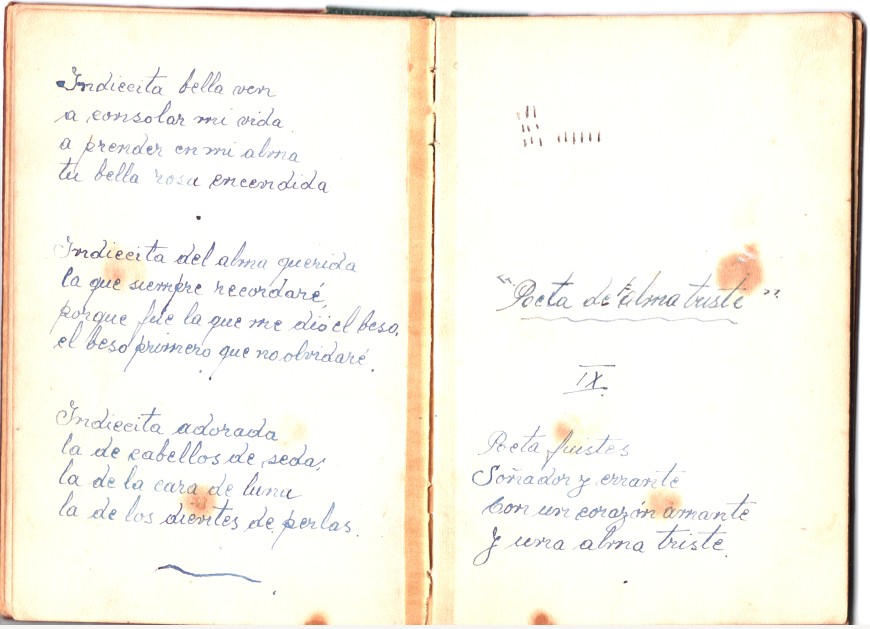 Indiecita bella ven
a consolar mi vida
a prender en mi alma
tu bella rosa encendida
Indiecita del alma querida
la que siempre recordaré,
porque fue la que me dió el beso,
el beso primero que no olvidaré.
Indiecita adorada
la de cabellos de seda;
la de la cara de luna
la de los dientes de perlas.
"Poeta de alma triste"
IX.
Poeta fuistes
Soñador y errante
Con un corazón amante
Y una alma triste.